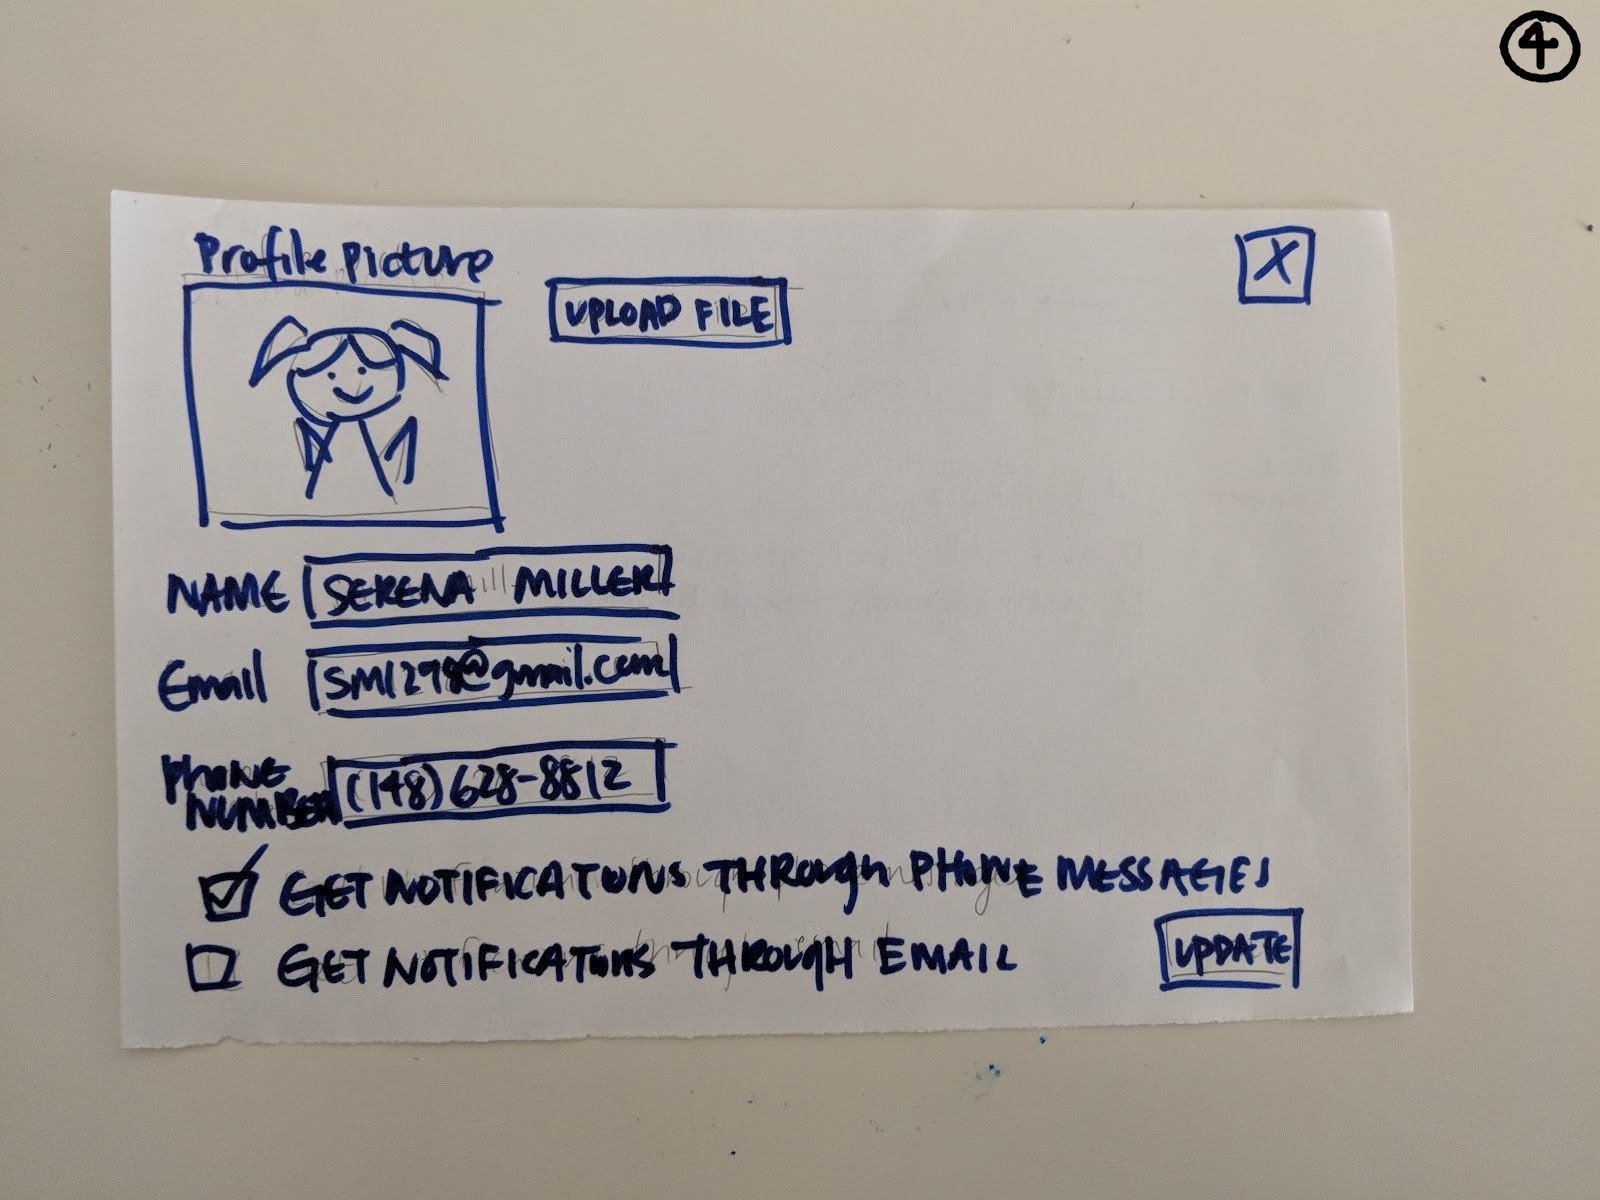 4
Profile Picture
UPLOAD FILE
X
NAME SERENA MILLER
Email SM1298@gmail.com
PHONE NUMBER (148) 628-8812
GET NOTIFICATIONS THROUGH PHONE MESSAGES
GET NOTIFICATIONS THROUGH EMAIL
UPDATE